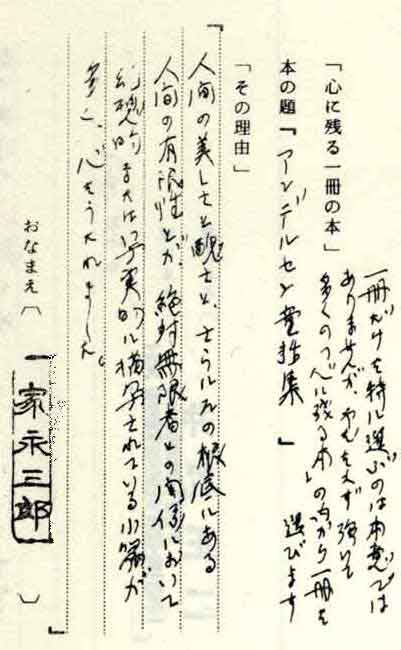 「心に残る一冊の本」
一冊だけを特に選ぶのは本意では
ありませんが、やむをえず強いて
多くの「心に残る本」の内から一冊を
選びます
本の題『アンデルセン童話集』
「その理由」
『人間の美しさと醜さと、さらにその根底にある
人間の有限性とが、絶対無限者との関係において
幻想的または写実的に描写されている小篇が
多く、心をうたれました。
』
おなまえ〔 家永三郎 〕